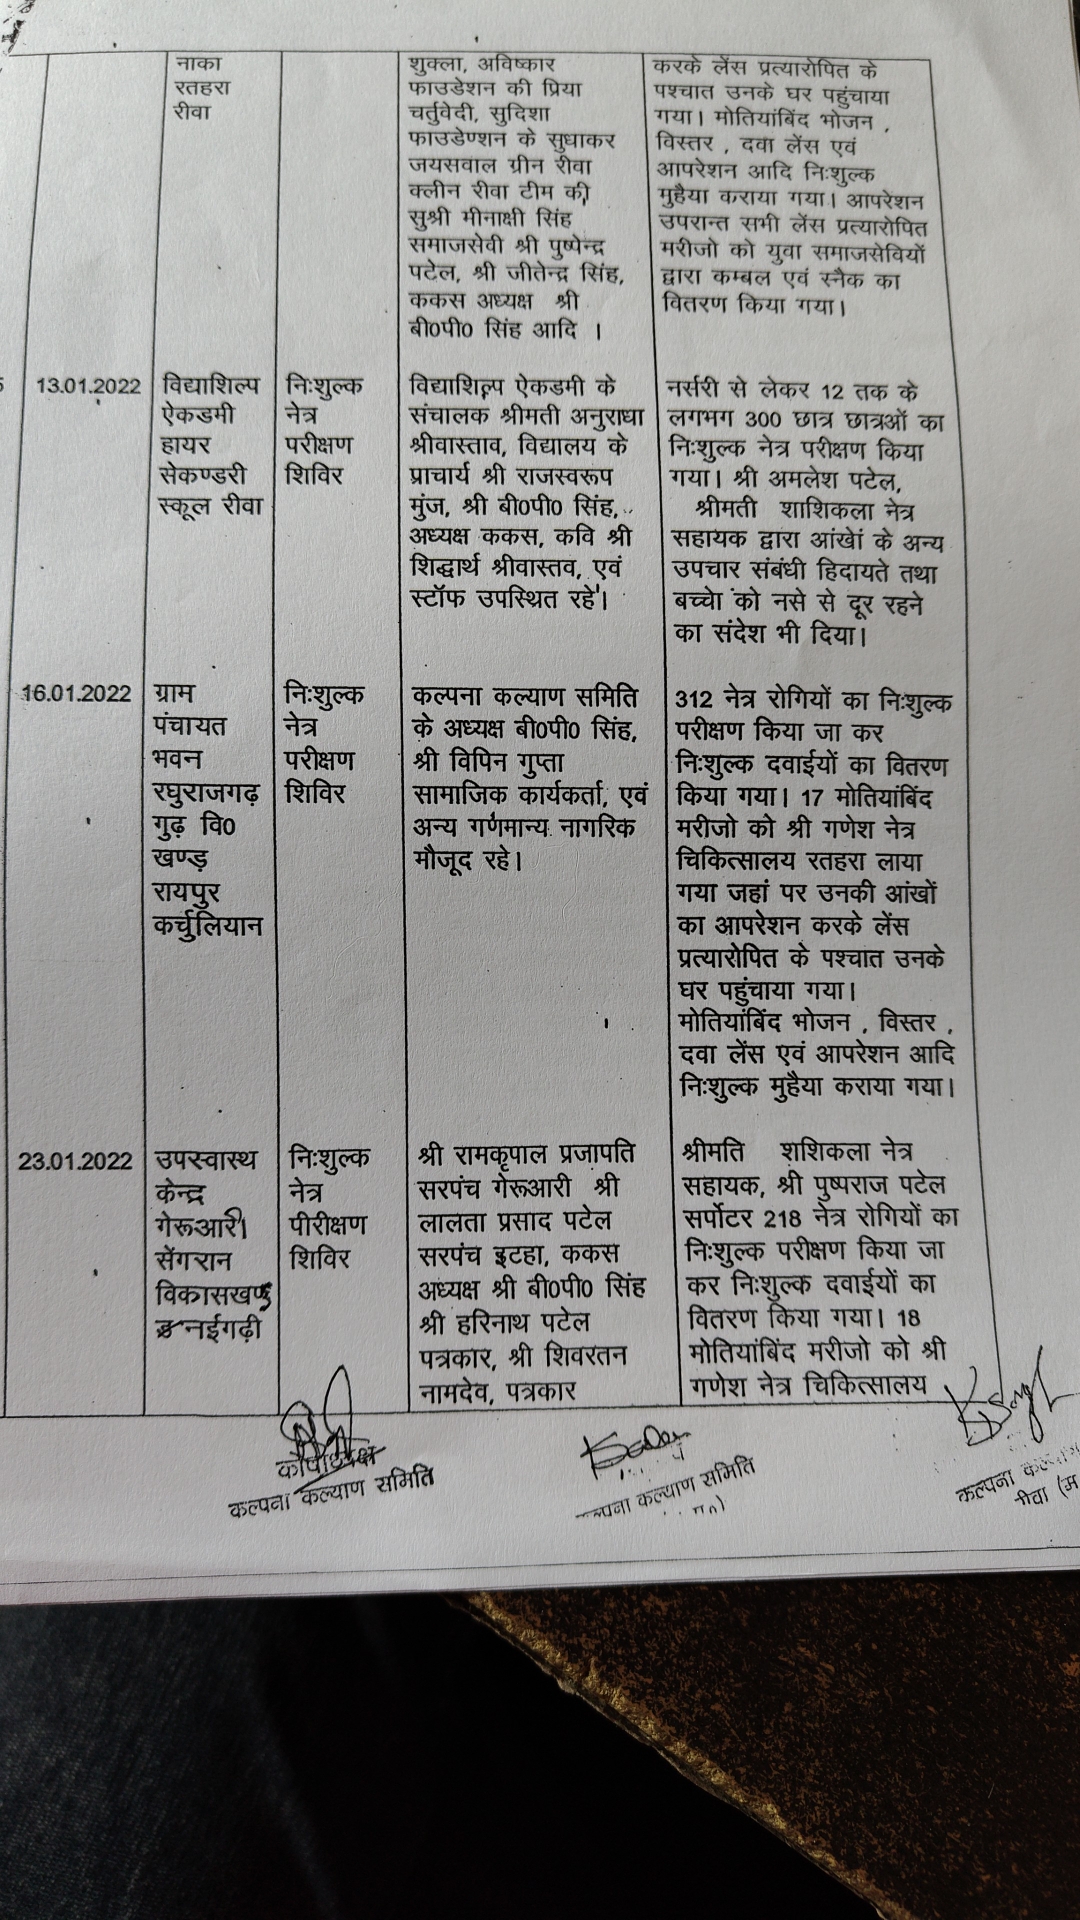 नाका
रतहरा
रीवा
शुक्ला, अविष्कार
फाउडेशन की प्रिया
चर्तुवेदी, सुदिशा
फाउडेण्शन के सुधाकर
जयसवाल ग्रीन रीवा
क्लीन रीवा टीम की
सुश्री मीनाक्षी सिंह
समाजसेवी श्री पुष्पेन्द्र
पटेल, श्री जीतेन्द्र सिंह,
ककस अध्यक्ष श्री
बी0पी0 सिंह आदि ।
करके लेंस प्रत्यारोपित के
पश्चात उनके घर पहुंचाया
गया। मोतियांबिंद भोजन ,
विस्तर , दवा लेंस एवं
आपरेशन आदि निःशुल्क
मुहैया कराया गया। आपरेशन
उपरान्त सभी लेंस प्रत्यारोपित
मरीजो को युवा समाजसेवियों
द्वारा कम्बल एवं स्नैक का
वितरण किया गया।
13.01.2022
विद्याशिल्प
ऐकडमी
हायर
सेकण्डरी
स्कूल रीवा
निःशुल्क
नेत्र
परीक्षण
शिविर
विद्याशिल्प ऐकडमी के
संचालक श्रीमती अनुराधा
श्रीवास्ताव, विद्यालय के
प्राचार्य श्री राजस्वरूप
मुंज, श्री बी0पी0 सिंह,
अध्यक्ष ककस, कवि श्री
शिद्धार्थ श्रीवास्तव, एवं
स्टॉफ उपस्थित रहे।
नर्सरी से लेकर 12 तक के
लगभग 300 छात्र छात्रओं का
निःशुल्क नेत्र परीक्षण किया
गया। श्री अमलेश पटेल,
श्रीमती शाशिकला नेत्र
सहायक द्वारा आंखेां के अन्य
उपचार संबंधी हिदायते तथा
बच्चेा को नसे से दूर रहने
का संदेश भी दिया।
16.01.2022
ग्राम
पंचायत
भवन
रघुराजगढ़
गुढ़ वि0
खण्ड़
रायपुर
कर्चुलियान
निःशुल्क
नेत्र
परीक्षण
शिविर
कल्पना कल्याण समिति
के अध्यक्ष बी0पी0 सिंह,
श्री विपिन गुप्ता
सामाजिक कार्यकर्ता, एवं
अन्य गणंमान्य नागरिक
मौजूद रहे।
312 नेत्र रोगियों का निःशुल्क
परीक्षण किया जा कर
निःशुल्क दवाईयों का वितरण
किया गया। 17 मोतियांबिंद
मरीजो को श्री गणेश नेत्र
चिकित्सालय रतहरा लाया
गया जहां पर उनकी आंखों
का आपरेशन करके लेंस
प्रत्यारोपित के पश्चात उनके
घर पहुंचाया गया।
मोतियांबिंद भोजन , विस्तर ,
दवा लेंस एवं आपरेशन आदि
निःशुल्क मुहैया कराया गया।
23.01.2022
उपस्वास्थ
केन्द्र
गेरूआरी
सेंगरान
विकासखण्ड
नईगढ़ी
निःशुल्क
नेत्र
पीरीक्षण
शिविर
श्री रामकृपाल प्रजापति
सरपंच गेरूआरी श्री
लालता प्रसाद पटेल
सरपंच इटहा, ककस
अध्यक्ष श्री बी0पी0 सिंह
श्री हरिनाथ पटेल
पत्रकार, श्री शिवरतन
नामदेव, पत्रकार
श्रीमति शशिकला नेत्र
सहायक, श्री पुष्पराज पटेल
सर्पोटर 218 नेत्र रोगियों का
निःशुल्क परीक्षण किया जा
कर निःशुल्क दवाईयों का
वितरण किया गया। 18
मोतियांबिंद मरीजो को श्री
गणेश नेत्र चिकित्सालय
कोषाध्यक्ष
कल्पना कल्याण समिति
कल्याण समिति
कल्पना
रीवा